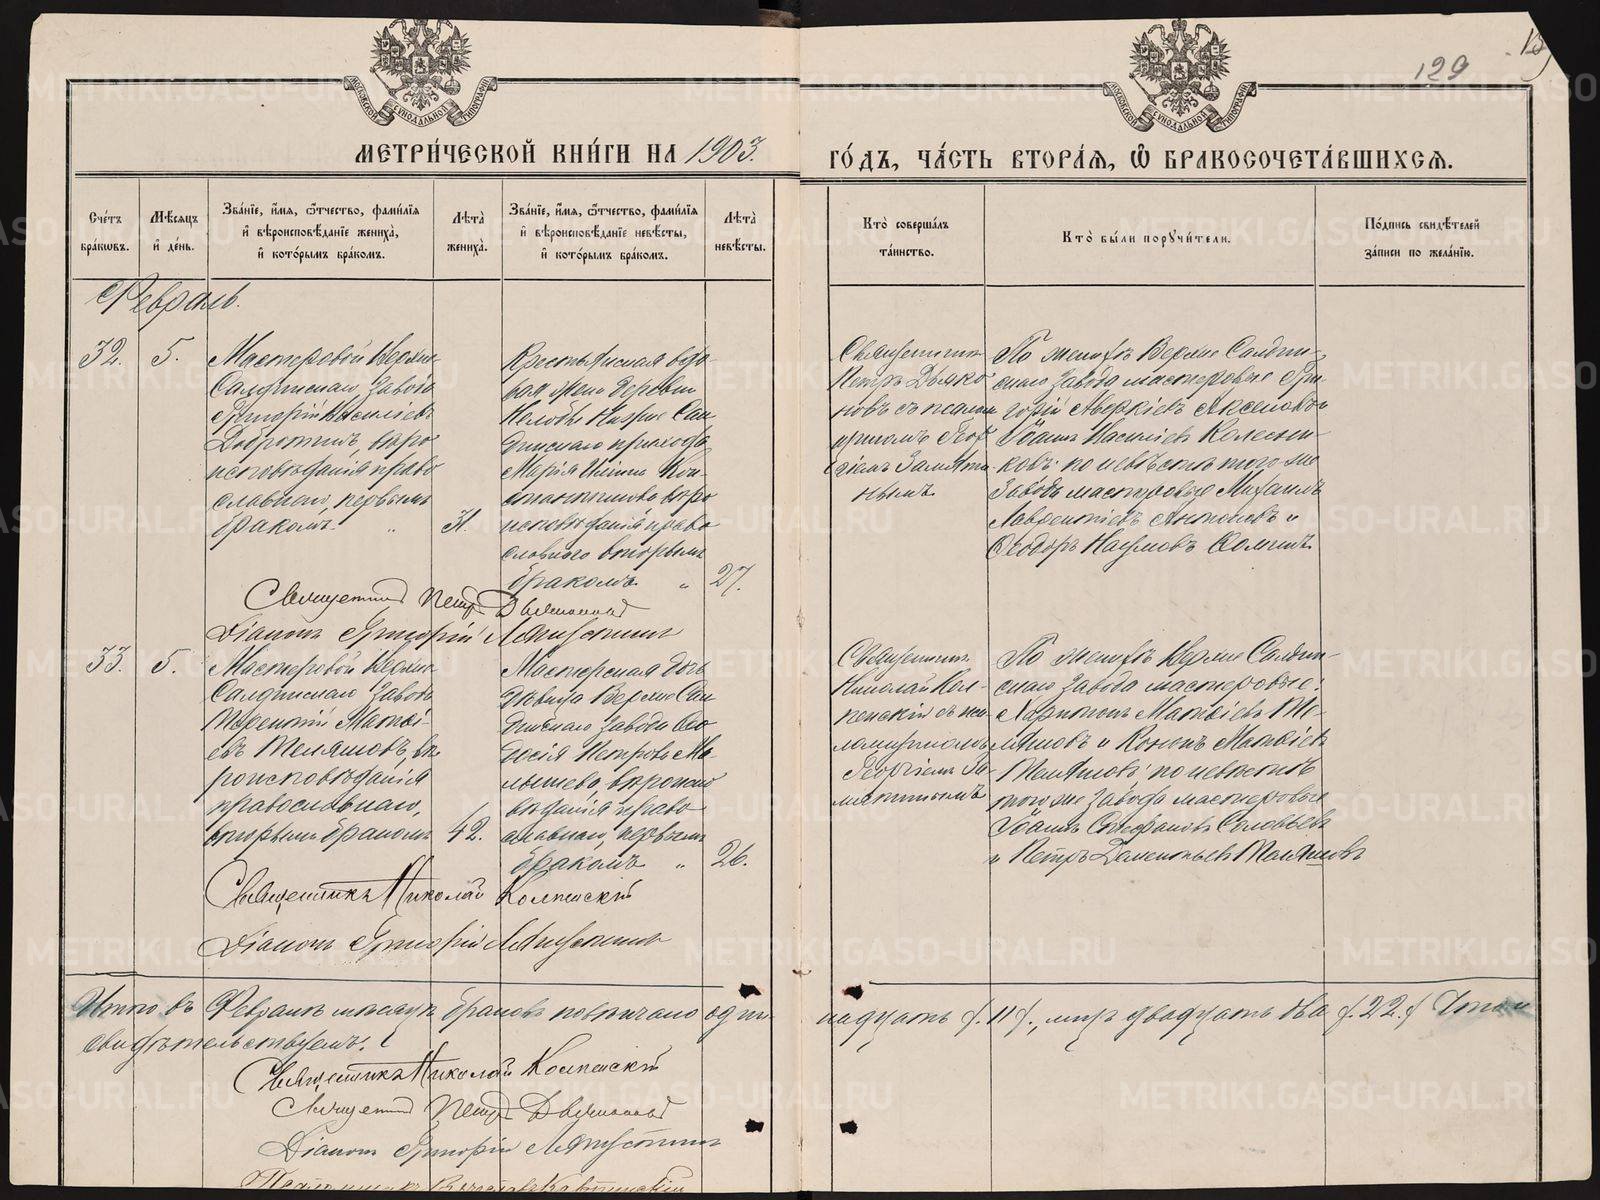 129
МЕТРИ́ЧЕСКОЙ КНИ́ГИ НА 1903.
ГО́ДЪ, ЧА́СТЬ ВТОРА́Я, Ѡ҆ БРАКОСОЧЕТА́ВШИХСЯ.
Сче́тъ
бра́кѡвъ.
Мѣ́сяцъ
и҆ де́нь.
Зва́нїе, и҆́мя, ѻ҆́тчество, фами́лїя
и҆ вѣроисповѣ́данїе жениха̀,
и҆ кото́рымъ бра́комъ.
Лѣта̀
жениха̀.
Зва́нїе, и҆́мя, ѻ҆́тчество, фами́лїя
и҆ вѣроисповѣ́данїе невѣ́сты,
и҆ кото́рымъ бра́комъ.
Лѣта̀
невѣ́сты.
Кто̀ соверша́лъ
та́инство.
Кто̀ бы́ли порꙋчи́тели.
По́дпись свидѣ́телей
за́писи по жела́нїю.
Февраль.
32.
5.
Мастеровой Верхне
Салдинскаго Завода
Григорій Васильевъ
вѣро
исповѣданія право
славнаго, первымъ
бракомъ. „
31.
Крестьянская вдо-
вая жена деревни
Нижне Сал
динскаго прихода
Марія Кон
стантинова вѣро
исповѣданія право
славнаго вторымъ
бракомъ. „
27.
Священникъ
Петръ Дьяко
новъ съ псалом
щикомъ Геор
гіемъ Замяти
нымъ.
По женихѣ Верхне Салдин-
скаго Завода мастеровые Гри-
горій Аверкіевъ Аксеновъ и
Іоаннъ Васильевъ Колесни-
ковъ: по невѣстѣ того-же
Завода мастеровые Михаилъ
Лаврентіевъ Антоновъ и
Ѳеодоръ Наумовъ
Священникъ Петръ Дьяконовъ
Діаконъ Григорій
33.
5.
Мастеровой Верхне
Салдинскаго Завода
Терентій Матѳі-
евъ Теляшовъ, вѣ
роисповѣданія
православнаго,
вторымъ бракомъ
42.
Мастерская дочь
дѣвица Верхне Сал
динскаго Завода Ѳео
досія Петрова Ма-
лышева, вѣроиспо
вѣданія право
славнаго, первымъ
бракомъ „
26.
Священникъ
Николай Кол-
пенскій съ пса
ломщикомъ
Георгіемъ За
мятинымъ
По женихѣ Верхне Салдин-
скаго Завода мастеровые:
Харитонъ Матѳіевъ Те-
ляшовъ и Кононъ Матѳіевъ
Теляшовъ: по невѣстѣ
того же Завода мастеровые
Іоаннъ Стефановъ Соловьевъ
и Петръ Дементьевъ Теляшовъ
Священникъ Николай Колпенскій
Діаконъ Григорій
Итого въ Февралѣ мѣсяцѣ браковъ повѣнчано один-
надцать /.11/., лицъ двадцать два /.22./ Въ томъ
свидѣтельствуемъ:
Священникъ Николай Колпенскій
Священникъ Петръ Дьяконовъ
Діаконъ Григорій
METRIKI.GASO-URAL.RU